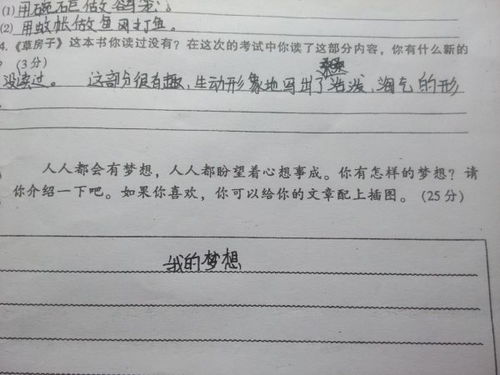 (1)用碗柜做鸽笼;
(2)用蚊帐做鱼网打鱼。
4.《草房子》这本书你读过没有?在这次的考试中你读了这部分内容,你有什么新的
? (3分)
没读过。 这部分很有趣,生动形象地写出了桑桑活泼、淘气的形
人人都会有梦想,人人都盼望着心想事成。你有怎样的梦想?请
你介绍一下吧。如果你喜欢,你可以给你的文章配上插图。(25分)
我的梦想